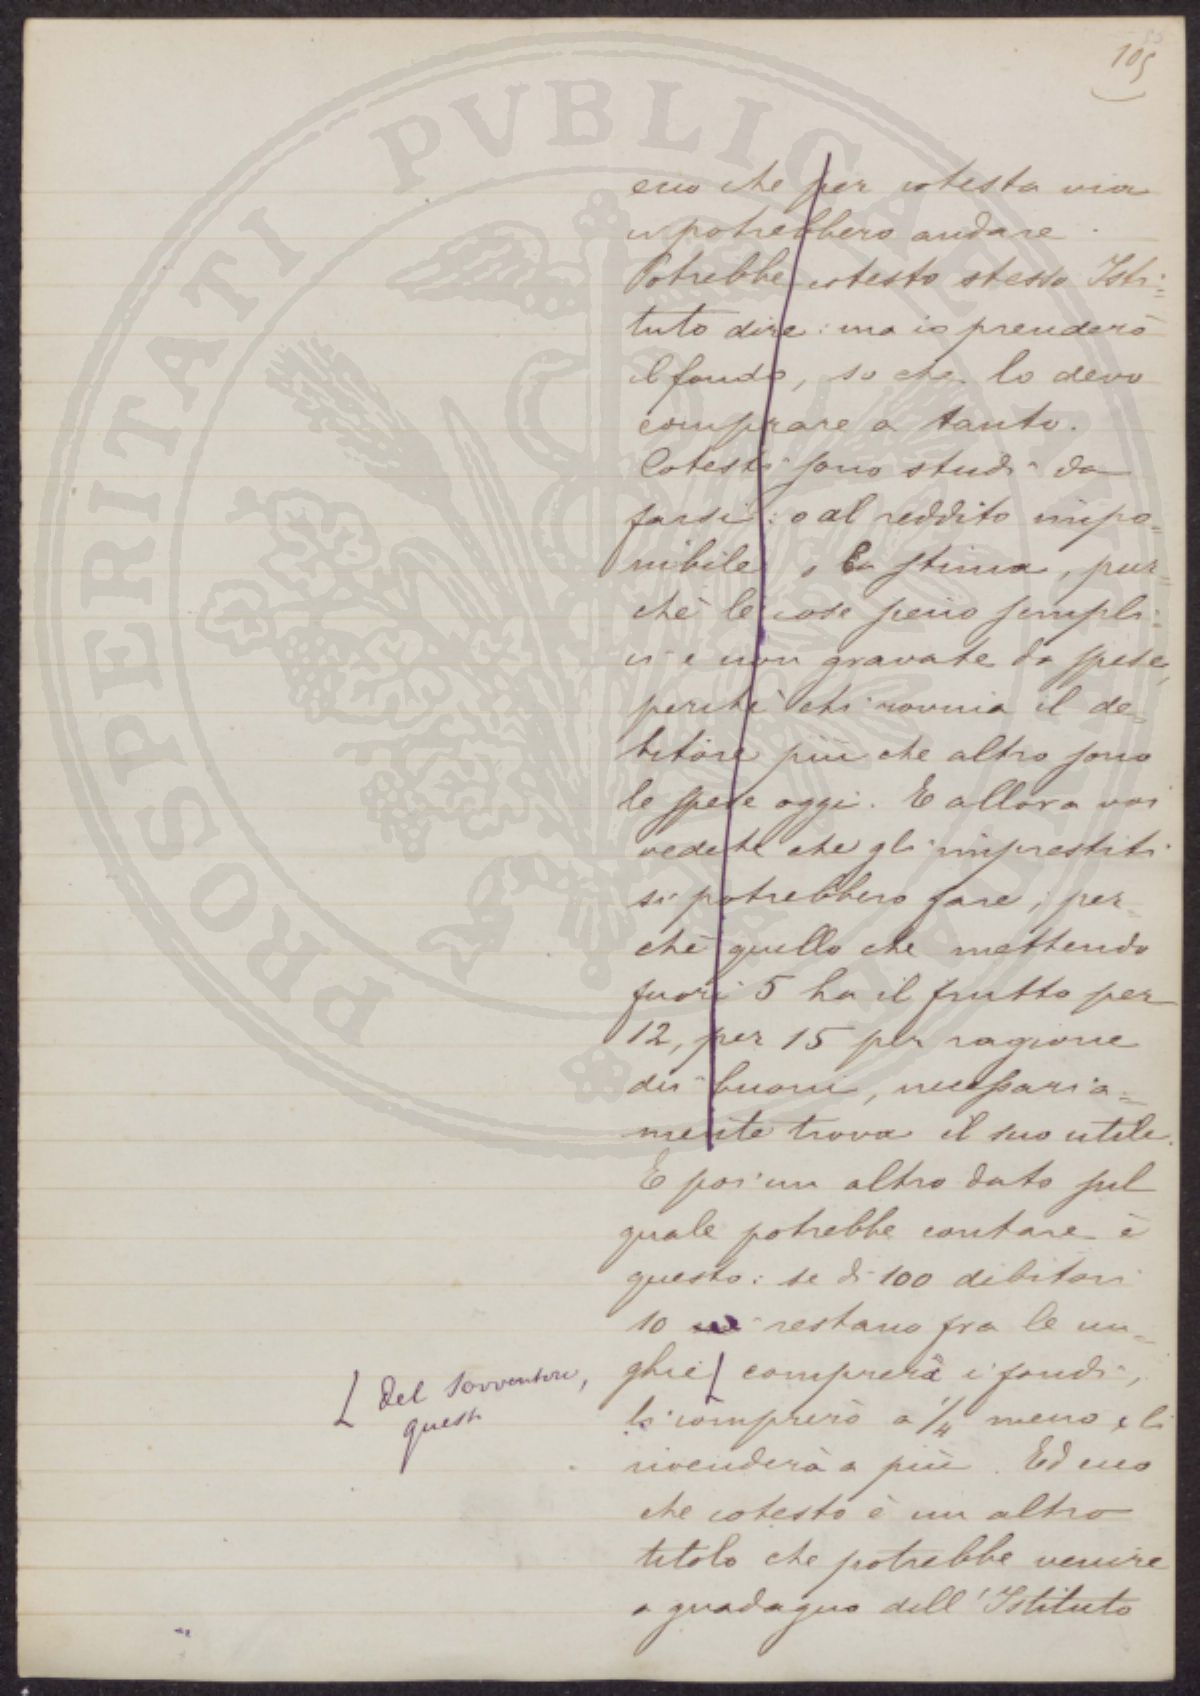 105
ecco che per cotesta via
ci potrebbero andare.
Potrebbe cotesto stesso Isti=
tuto dire: ma io prenderò
il fondo, so che lo devo
comprare a tanto.
Cotesti sono studi da
farsi: o al reddito impo=
nibile, o la stima, pur=
chè le cose sieno sempli=
ci e non gravate da spese,
perchè chi rovina il de=
bitore più che altro sono
le spese oggi. E allora voi
vedete che gli imprestiti
si potrebbero fare; per=
chè quello che mettendo
fuori 5 ha il frutto per
12, per 15 per ragione
dei buoni, necessaria=
mente trova il suo utile.
E poi un altro dato sul
quale potrebbe contare è
questo: se di 100 debitori
10 restano fra le un=
ghie comprerà i fondi,
li comprerò a 1/4 meno e li
rivenderà a più. Ed ecco
che cotesto è un altro
titolo che potrebbe venire
a guadagno dell'Istituto
del sovventore,
questi
PROSPERITATI PVBLICAE